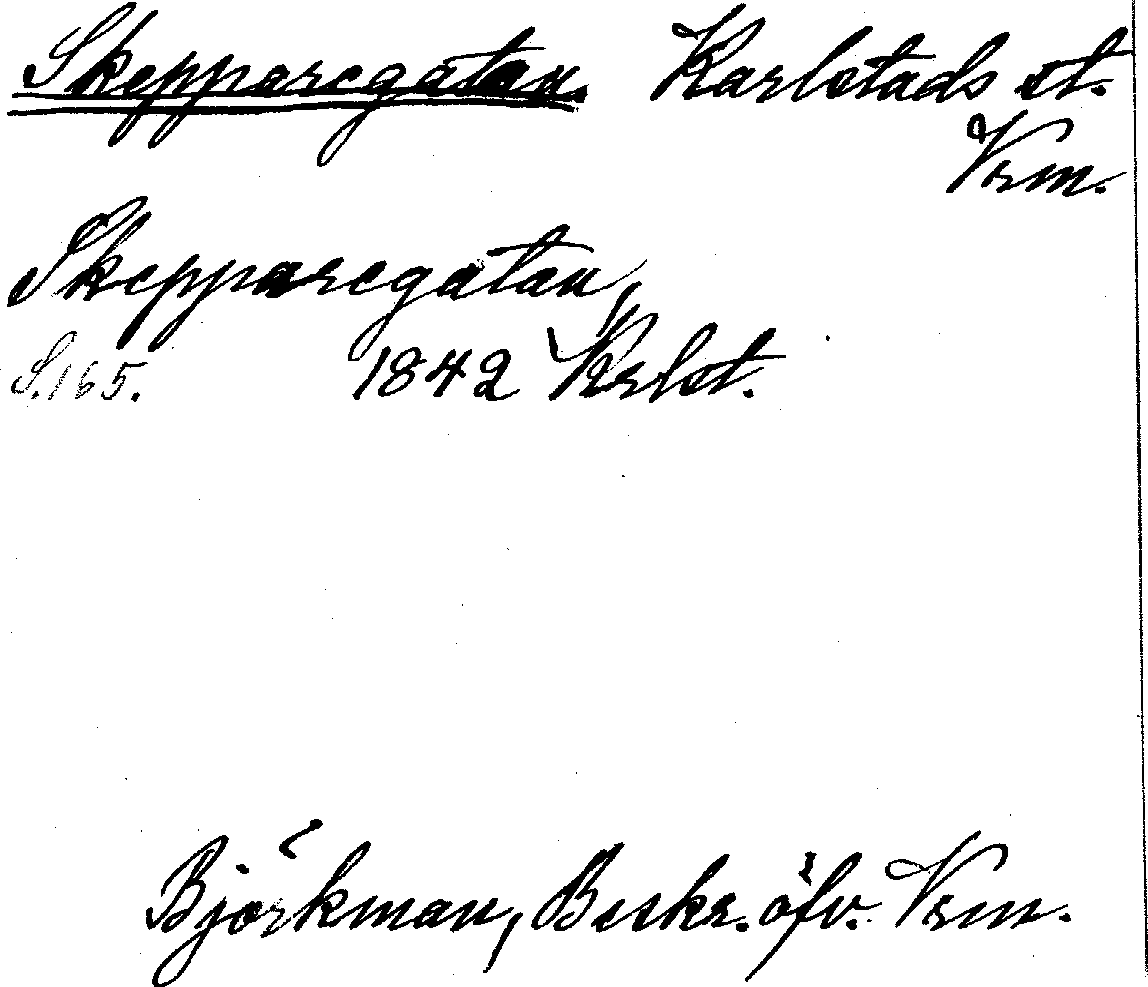 Skepparegatan. Karlstads st.
Vrm.
Skepparegatan,
S.165. 1842 Krlst.
Björkman, Beskr. öfv. Vrm.